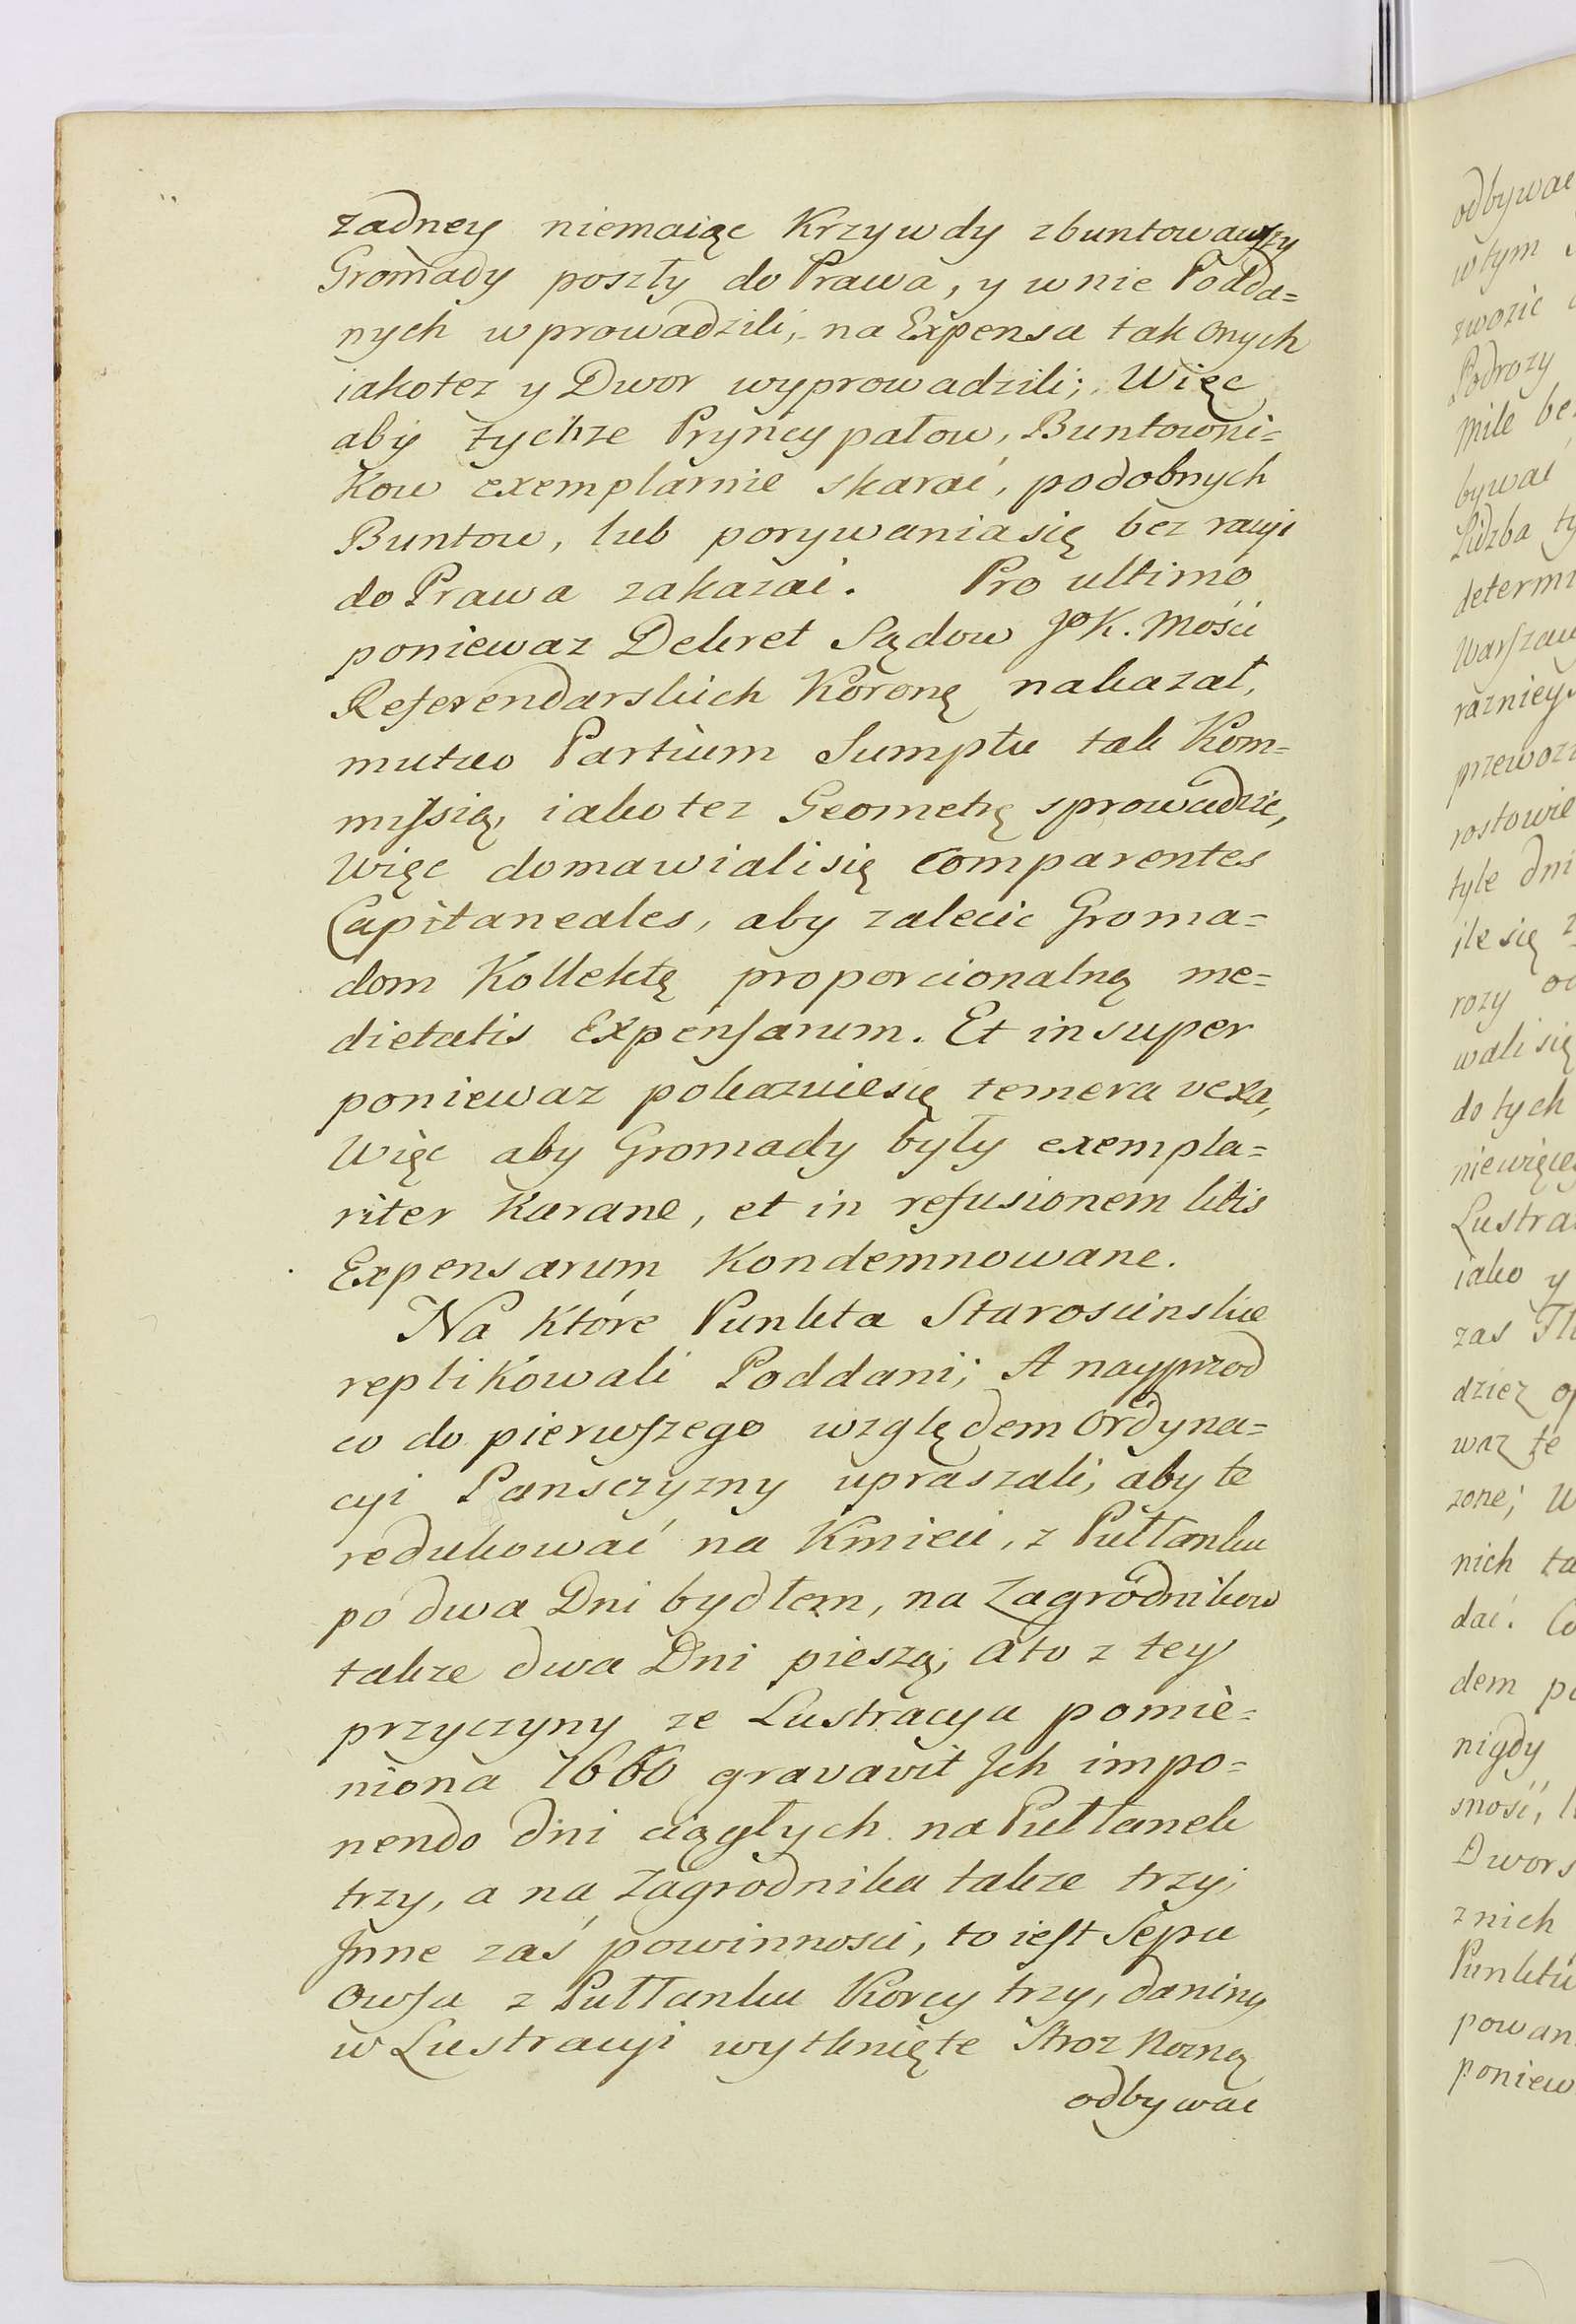 zadney niemaiąc Krzywdy zbuntowawszy
Gromady poszły do Prawa, y w nie Podda=
nych wprowadzili, na Expensa tak onych
iakotez y Dwor wyprowadzili; Więc
aby tychze Pryncypałow, Buntowni=
kow exemplarnie skarać, podobnych
Buntow, lub porywania się bez racyi
do Prawa zakazać. Pro ultimo
poniewaz Dekret Sądow JoK. Mości
Referendarskich Koronę nakazał,
mutuo Partium Sumptu tak Kom=
missią, iako tez Geometrę sprowadzic,
Więc domawiali się Comparentes
Capitaneales, aby zalecic Groma=
dom Kollektę proporcionalną me=
dietatis Expensarum. Et insuper
poniewaz pokazuie się temera vexa,
Więc aby Gromady były exempla=
riter karane, et in refusionem litis
Expensarum Kondemnowane.
Na które Punkta Staroscinskie
replikowali Poddani; A nayprzod
co do pierwszego względem Ordyna=
cyi Pansczyzny upraszali, aby te
redukować na Kmieci, z Pułłanku
po dwa Dni bydłem, na Zagrodnikow
takze dwa Dni pieszą; a to z tey
przyczyny ze Lustracya pomie=
niona 1660 gravavit Jch impo=
nendo dni ciągłych na Pułłanek
trzy, a na Zagrodnika takze trzy;
Jnne zaś powinnosci, to iest Sepu
Owsa z Pułłanku Korcy trzy, daniny
w Lustracyi wytknięte Stroz nocną
odbywac
odbywac
w tym
zwozic
Podrozy
mile be
bywać
Lidzba ty
determi
Warszaw
razniey
przewoz
rostowie
tyle dni
ile się
rozy od
wali się
do tych
niewięcey
Lustra
iako y
zas
dziez
waz te
zone; W
nich ta
dać. Co
dem po
nigdy
sność,
Dwors
z nich
Punktu
powan
poniew